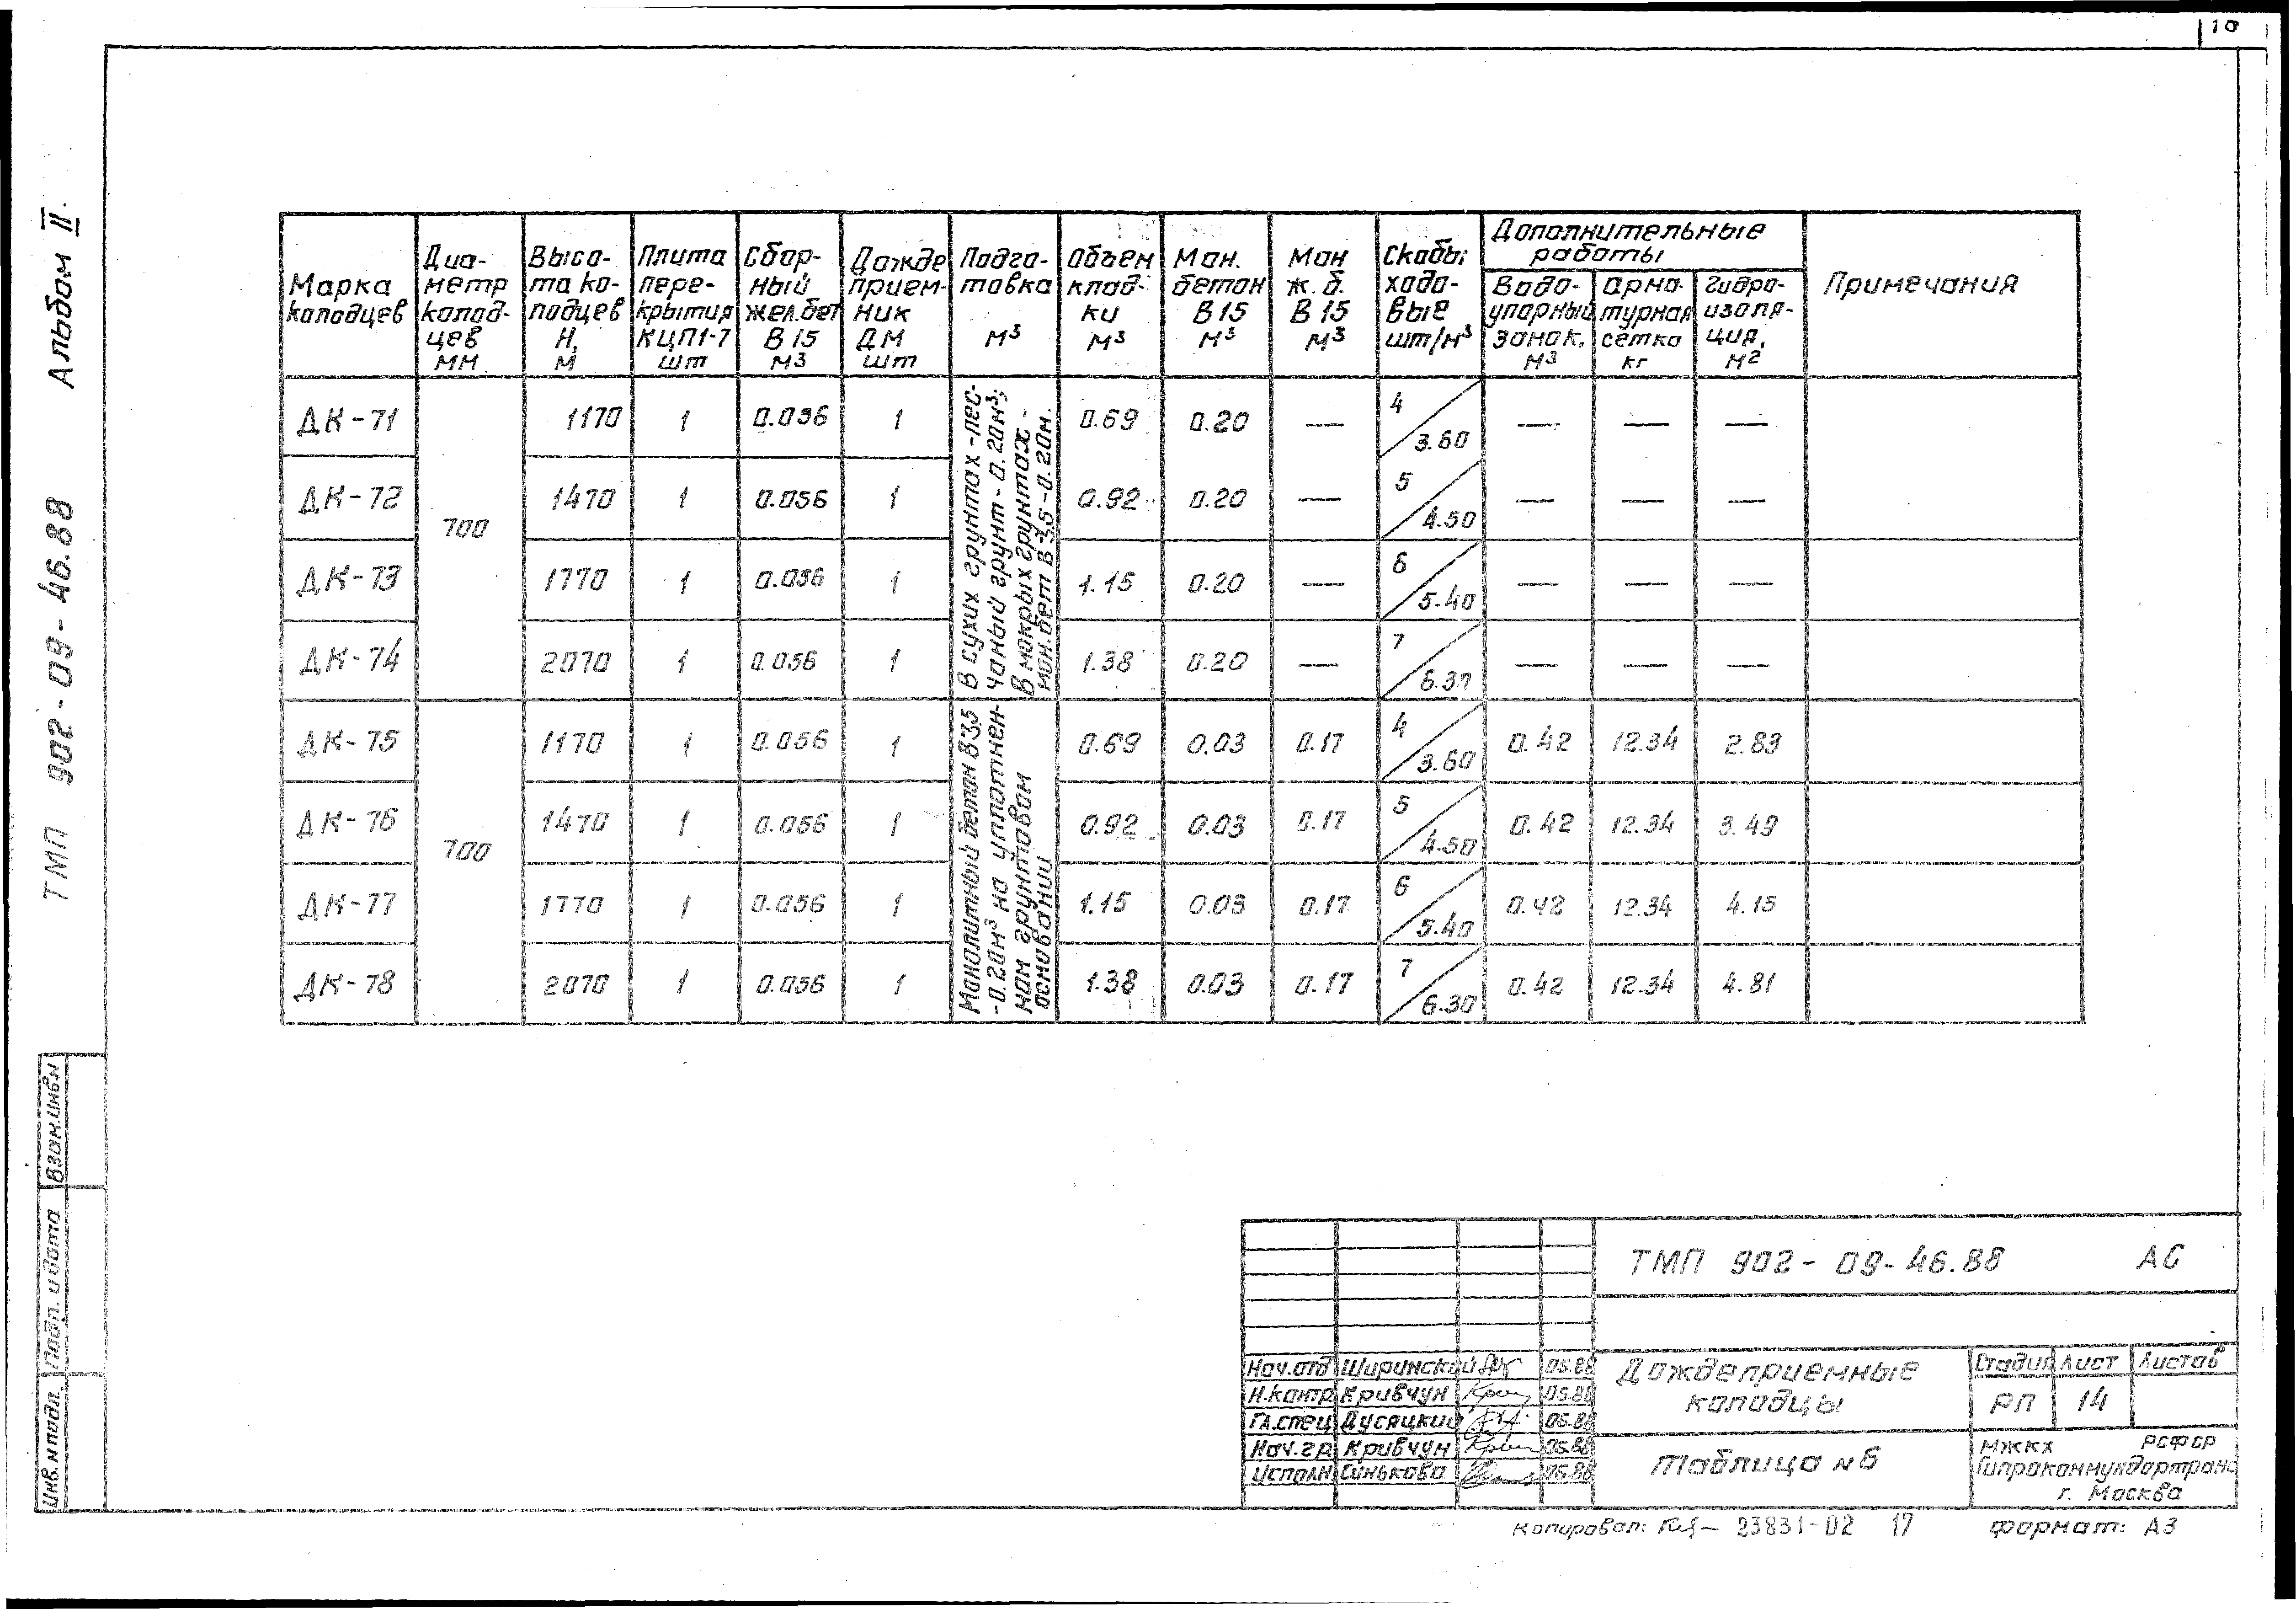 10
Альбом II
ТМП 902-09-46.88
Марка колодцев
Диаметр колодцев мм
Высота колодцев Н, м
Плита перекрытия КЦП1-7 шт
Сборный жел.бет В15 м³
Дождеприемник ДМ шт
Подготовка м³
Объем кладки м³
Мон. бетон В15 м³
Мон ж.б. В15 м³
Скобы ходовые шт/м³
Дополнительные работы
Водоупорный замок, м³
Арматурная сетка кг
Гидроизоляция, м²
Примечания
700
В сухих грунтах - песчаный грунт - 0.20м³; В мокрых грунтах - мон.бет В3.5 - 0.20м.
ДК-71 1170 1 0.056 1 0.69 0.20 — 4/3.60 — — —
ДК-72 1470 1 0.056 1 0.92 0.20 — 5/4.50 — — —
ДК-73 1770 1 0.056 1 1.15 0.20 — 6/5.40 — — —
ДК-74 2070 1 0.056 1 1.38 0.20 — 7/6.30 — — —
700
Монолитный бетон В3.5 -0.20м³ на уплотненном грунтовом основании
ДК-75 1170 1 0.056 1 0.69 0.03 0.17 4/3.60 0.42 12.34 2.83
ДК-76 1470 1 0.056 1 0.92 0.03 0.17 5/4.50 0.42 12.34 3.49
ДК-77 1770 1 0.056 1 1.15 0.03 0.17 6/5.40 0.42 12.34 4.15
ДК-78 2070 1 0.056 1 1.38 0.03 0.17 7/6.30 0.42 12.34 4.81
Взам.инв.N
Подп. и дата
Инв.N подл.
ТМП 902-09-46.88 АС
Нач.отд Ширинский 05.88
Н.контр Кривчун 05.88
Гл.спец Дусяцкий 05.88
Нач.гр. Кривчун 05.88
Исполн Синькова 05.88
Дождеприемные
колодцы
Таблица N6
Стадия Лист Листов
РП 14
МЖКХ РСФСР
Гипрокоммундортранс
г. Москва
Копировал: 23831-02 17 Формат: А3